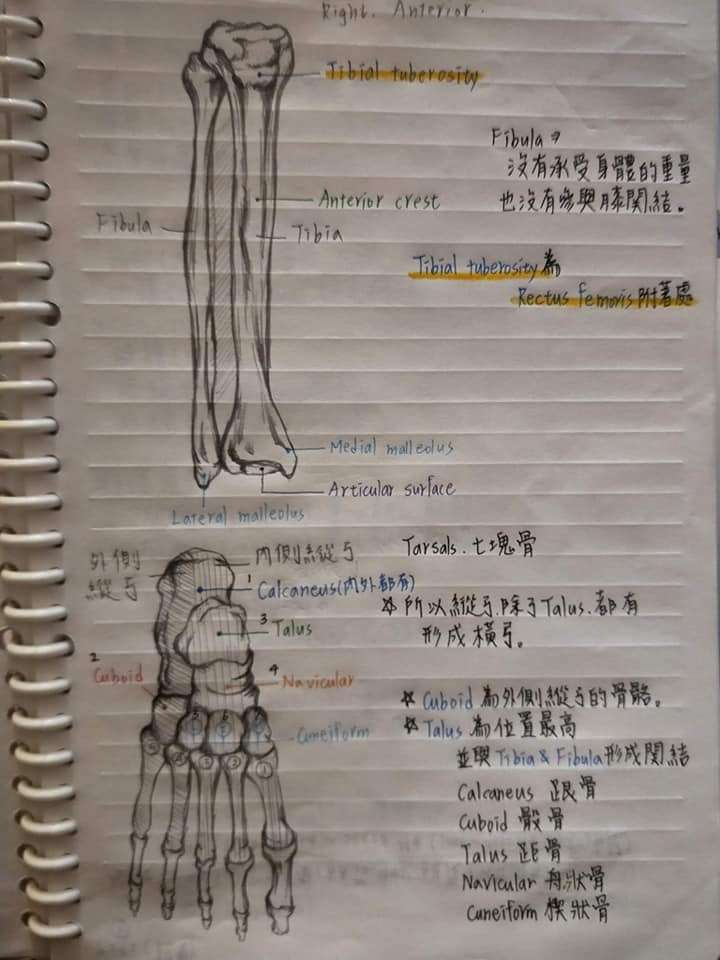 Right. Anterior.
Tibial tuberosity
Fibula →
沒有承受身體的重量
也沒有參與膝關結。
Anterior crest
Fibula
Tibia
Tibial tuberosity為
Rectus femoris附著處
Medial malleolus
Articular surface
Lateral malleolus
外側
縱弓
內側縱弓
Tarsals. 七塊骨
1
Calcaneus(內外都有)
☆所以縱弓.除了Talus.都有
形成橫弓。
3
Talus
2
Cuboid
4
Navicular
☆ Cuboid 為外側縱弓的骨骼。
☆ Talus 為位置最高
並與Tibia & Fibula形成關結
Cuneiform
5 6 7
⑤ ④ ③ ② ①
Calcaneus 跟骨
Cuboid 骰骨
Talus 距骨
Navicular 舟狀骨
Cuneiform 楔狀骨